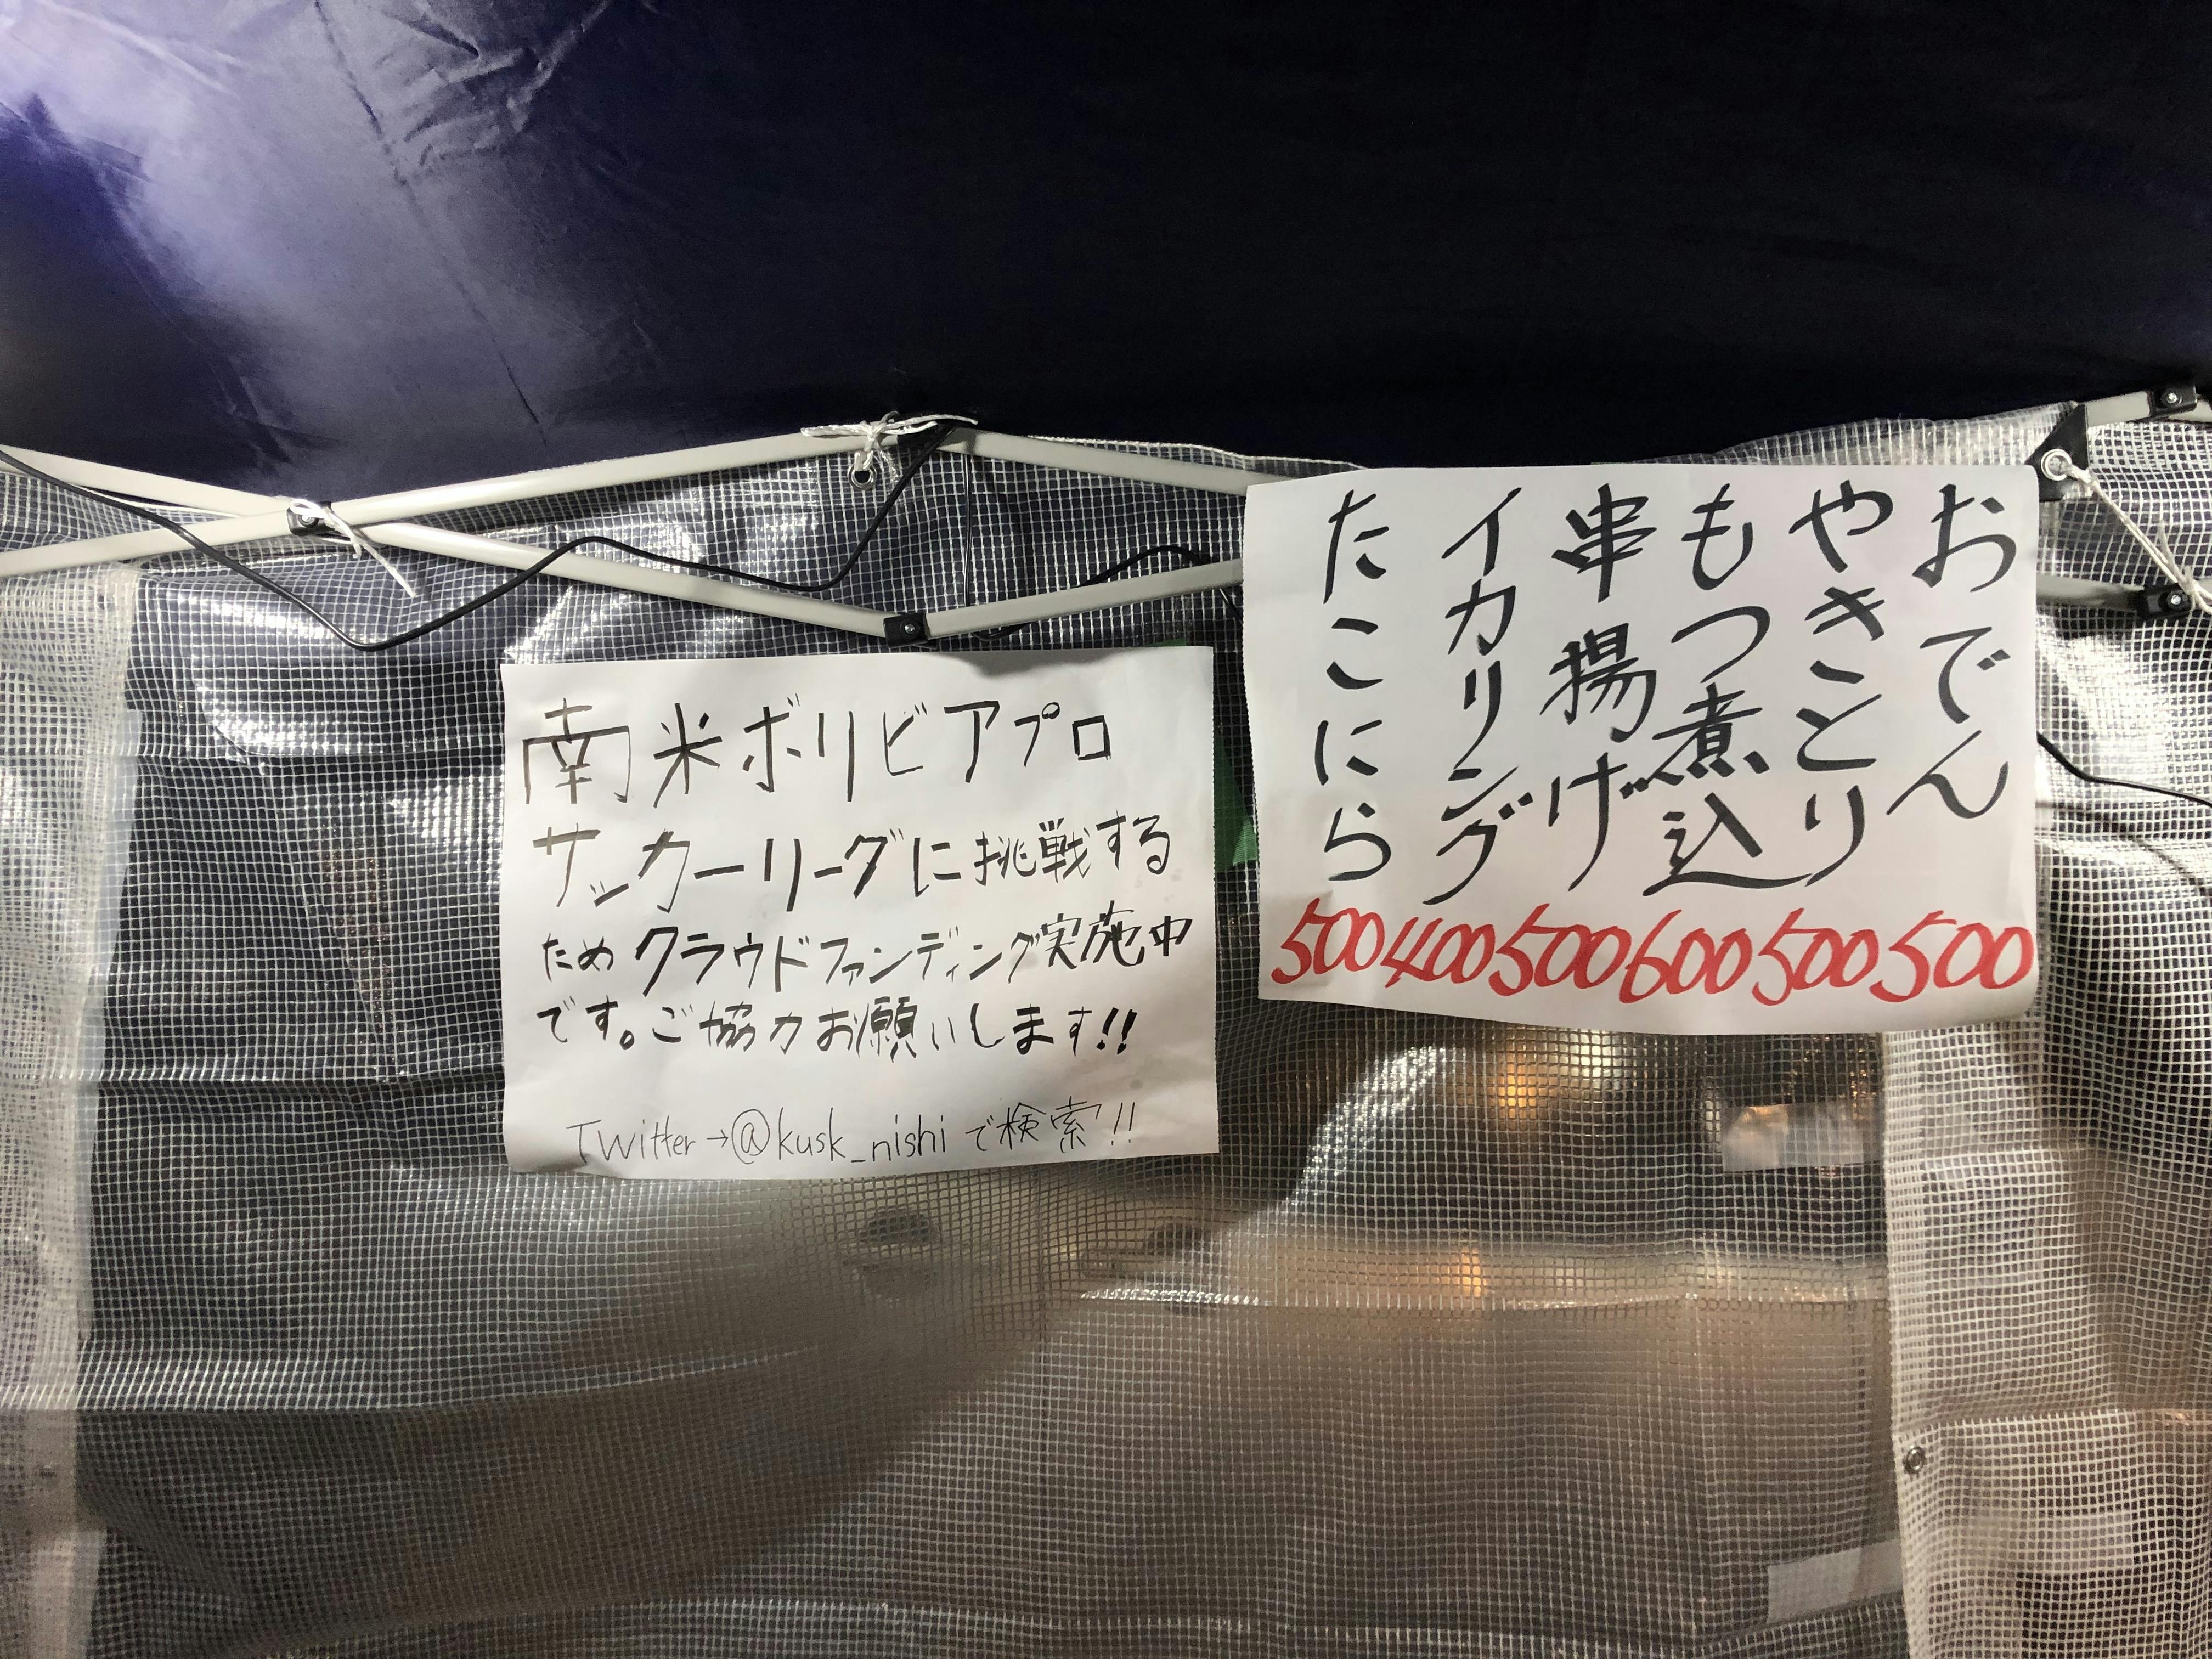 南米ボリビアプロ
サッカーリーグに挑戦する
ためクラウドファンディング実施中
です。ご協力お願いします!!
Twitter→@kusk_nishiで検索!!
おでん 500
やきとり 500
もつ煮込 600
串揚げ 500
イカリング 400
たこにら 500